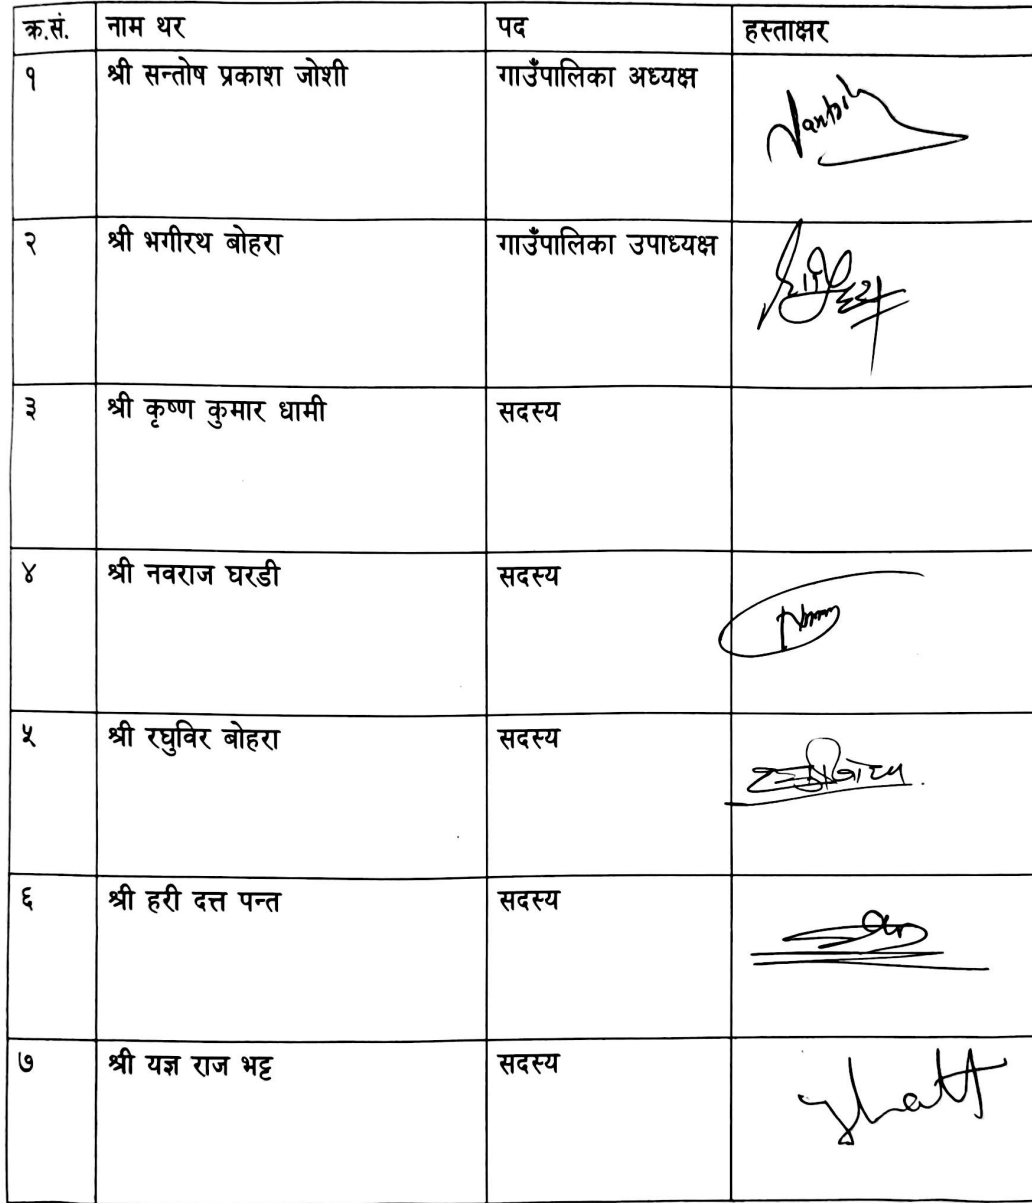 क्र.सं. नाम थर पद हस्ताक्षर
१ श्री सन्तोष प्रकाश जोशी गाउँपालिका अध्यक्ष
२ श्री भगीरथ बोहरा गाउँपालिका उपाध्यक्ष
३ श्री कृष्ण कुमार धामी सदस्य
४ श्री नवराज घरडी सदस्य
५ श्री रघुविर बोहरा सदस्य
६ श्री हरी दत्त पन्त सदस्य
७ श्री यज्ञ राज भट्ट सदस्य